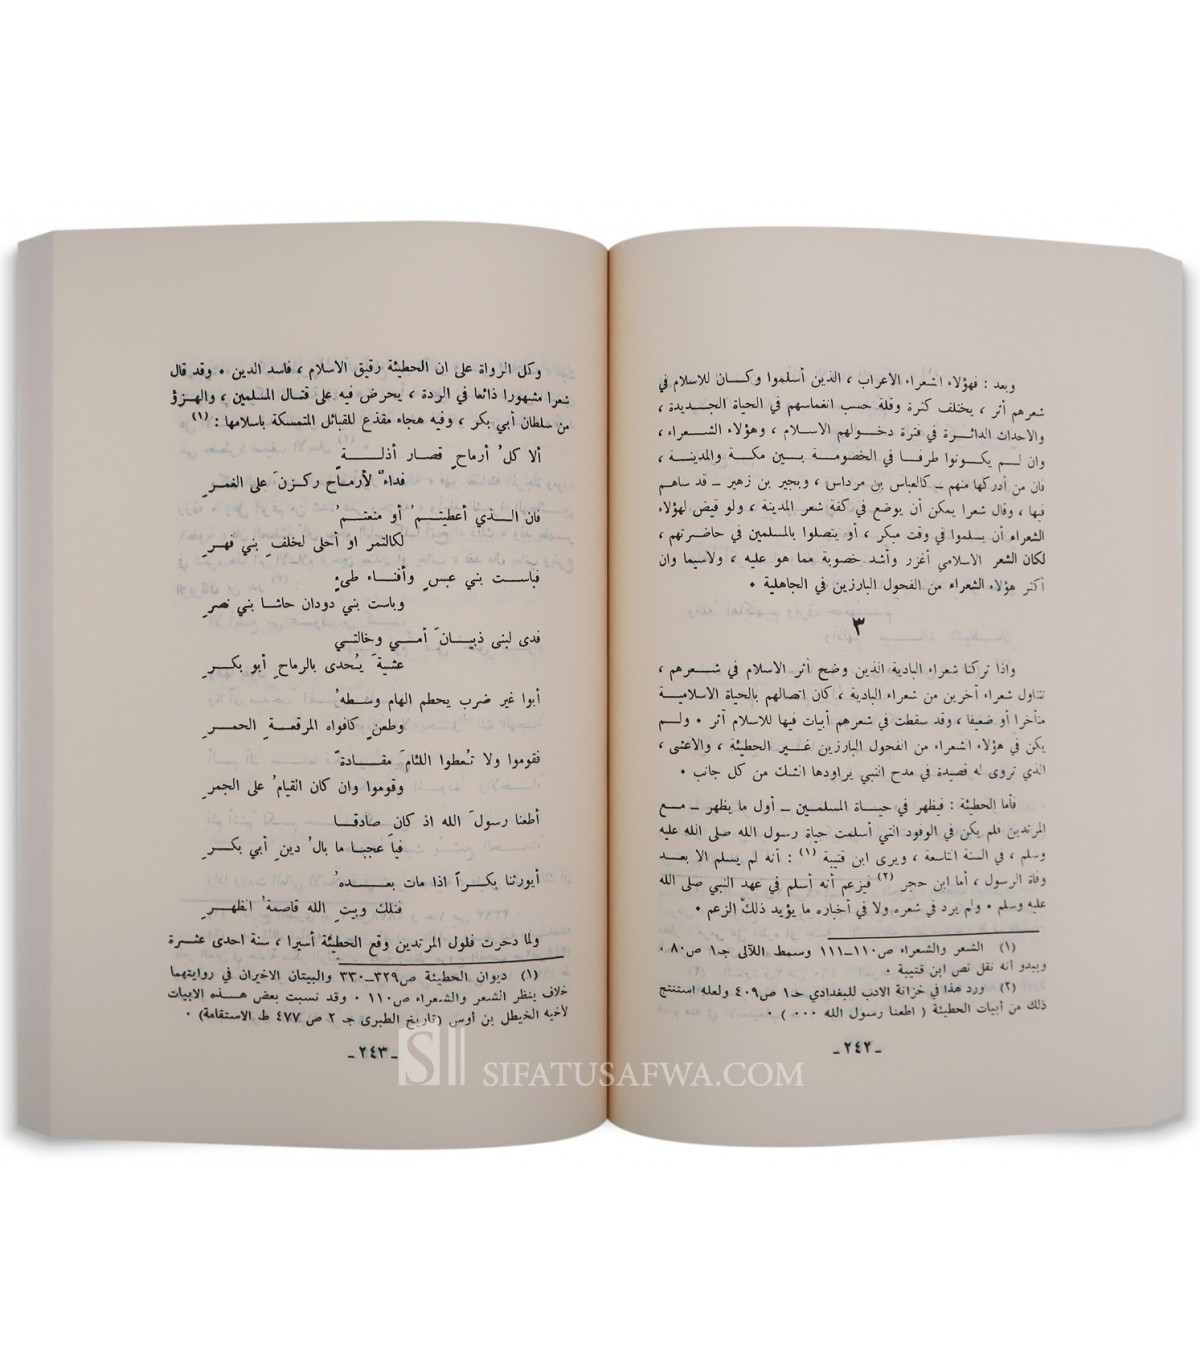 وبعد : فهؤلاء الشعراء الأعراب ، الذين أسلموا وكان للاسلام في
شعرهم أثر ، يختلف كثرة وقلة حسب انغماسهم في الحياة الجديدة ،
والاحداث الدائرة في فترة دخولهم الاسلام ، وهؤلاء الشعراء ،
وان لم يكونوا طرفا في الخصومة بين مكة والمدينة ،
فان من أدركها منهم ــ كالعباس بن مرداس ، وبجير بن زهير ــ قد ساهم
فيها ، وقال شعرا يمكن أن يوضع في كفة شعر المدينة ، ولو قيض لهؤلاء
الشعراء أن يسلموا في وقت مبكر ، أو يتصلوا بالمسلمين في حاضرتهم ،
لكان الشعر الاسلامي أغزر وأشد خصوبة مما هو عليه ، ولاسيما وان
أكثر هؤلاء الشعراء من الفحول البارزين في الجاهلية •
٣
واذا تركنا شعراء البادية الذين وضح أثر الاسلام في شعرهم ،
تتناول شعراء آخرين من شعراء البادية ، كان اتصالهم بالحياة الاسلامية
متأخرا أو ضعيفا ، وقد سقطت في شعرهم أبيات فيها للاسلام أثر • ولم
يكن في هؤلاء الشعراء من الفحول البارزين غير الحطيئة ، والاعشى ،
الذي تروى له قصيدة في مدح النبي يراودها الشك من كل جانب •
فأما الحطيئة : فيظهر في حياة المسلمين ــ أول ما يظهر ــ مع
المرتدين فلم يكن في الوفود التي أسلمت حياة رسول الله صلى الله عليه
وسلم ، في السنة التاسعة ، ويرى ابن قتيبة (١) : أنه لم يسلم الا بعد
وفاة الرسول ، أما ابن حجر (٢) فيزعم أنه أسلم في عهد النبي صلى الله
عليه وسلم • ولم يرد في شعره ولا في أخباره ما يؤيد ذلك الزعم •
(١) الشعر والشعراء ص١١٠ــ١١١ وسمط اللآلى جـ١ ص٨٠ ،
ويبدو أنه نقل نص ابن قتيبة •
(٢) ورد هذا في خزانة الادب للبغدادي جـ١ ص٤٠٩ ولعله استنتج
ذلك من أبيات الحطيئة ( اطعنا رسول الله ••• ) •
ــ٢٤٢ــ
وكل الرواة على ان الحطيئة رقيق الاسلام ، فاسد الدين • وقد قال
شعرا مشهورا ذائعا في الردة ، يحرض فيه على قتال المسلمين ، والهزؤ
من سلطان أبي بكر ، وفيه هجاء مقذع للقبائل المتمسكة باسلامها : (١)
ألا كلُ أرماحٍ قصار أذلةٍ
فداءٌ لأرماح ركزنَ على الغمرِ
فان الذي أعطيتمُ أو منعتمُ
لكالتمر او أحلى لخلفِ بني فهرِ
فباست بني عبسٍ وأفناء طيءٍ
وباست بني دودان حاشا بني نصرِ
فدى لبنى ذبيانَ أمي وخالتي
عشيةَ يُحدى بالرماحِ أبو بكرِ
أبوا غير ضرب يحطم الهام وسطهُ
وطعنٍ كافواه المرقعة الحمرِ
فقوموا ولا تُعطوا اللئامَ مقادةً
وقوموا وان كان القيامُ على الجمرِ
أطعنا رسولَ الله اذ كان صادقا
فيا عجبا ما بالُ دينِ أبي بكرِ
أيورثنا بكراً اذا مات بعدهُ
فتلك وبيتِ الله قاصمةُ الظهرِ
ولما دحرت فلول المرتدين وقع الحطيئة أسيرا ، سنة احدى عشرة
(١) ديوان الحطيئة ص٣٢٩ــ٣٣٠ والبيتان الاخيران في روايتهما
خلاف ينظر الشعر والشعراء ص١١٠ • وقد نسبت بعض هذه الابيات
لأخيه الخيطل بن أوس (تاريخ الطبرى جـ ٢ ص ٤٧٧ ط الاستقامة) •
ــ٢٤٣ــ
SIFATUSAFWA.COM